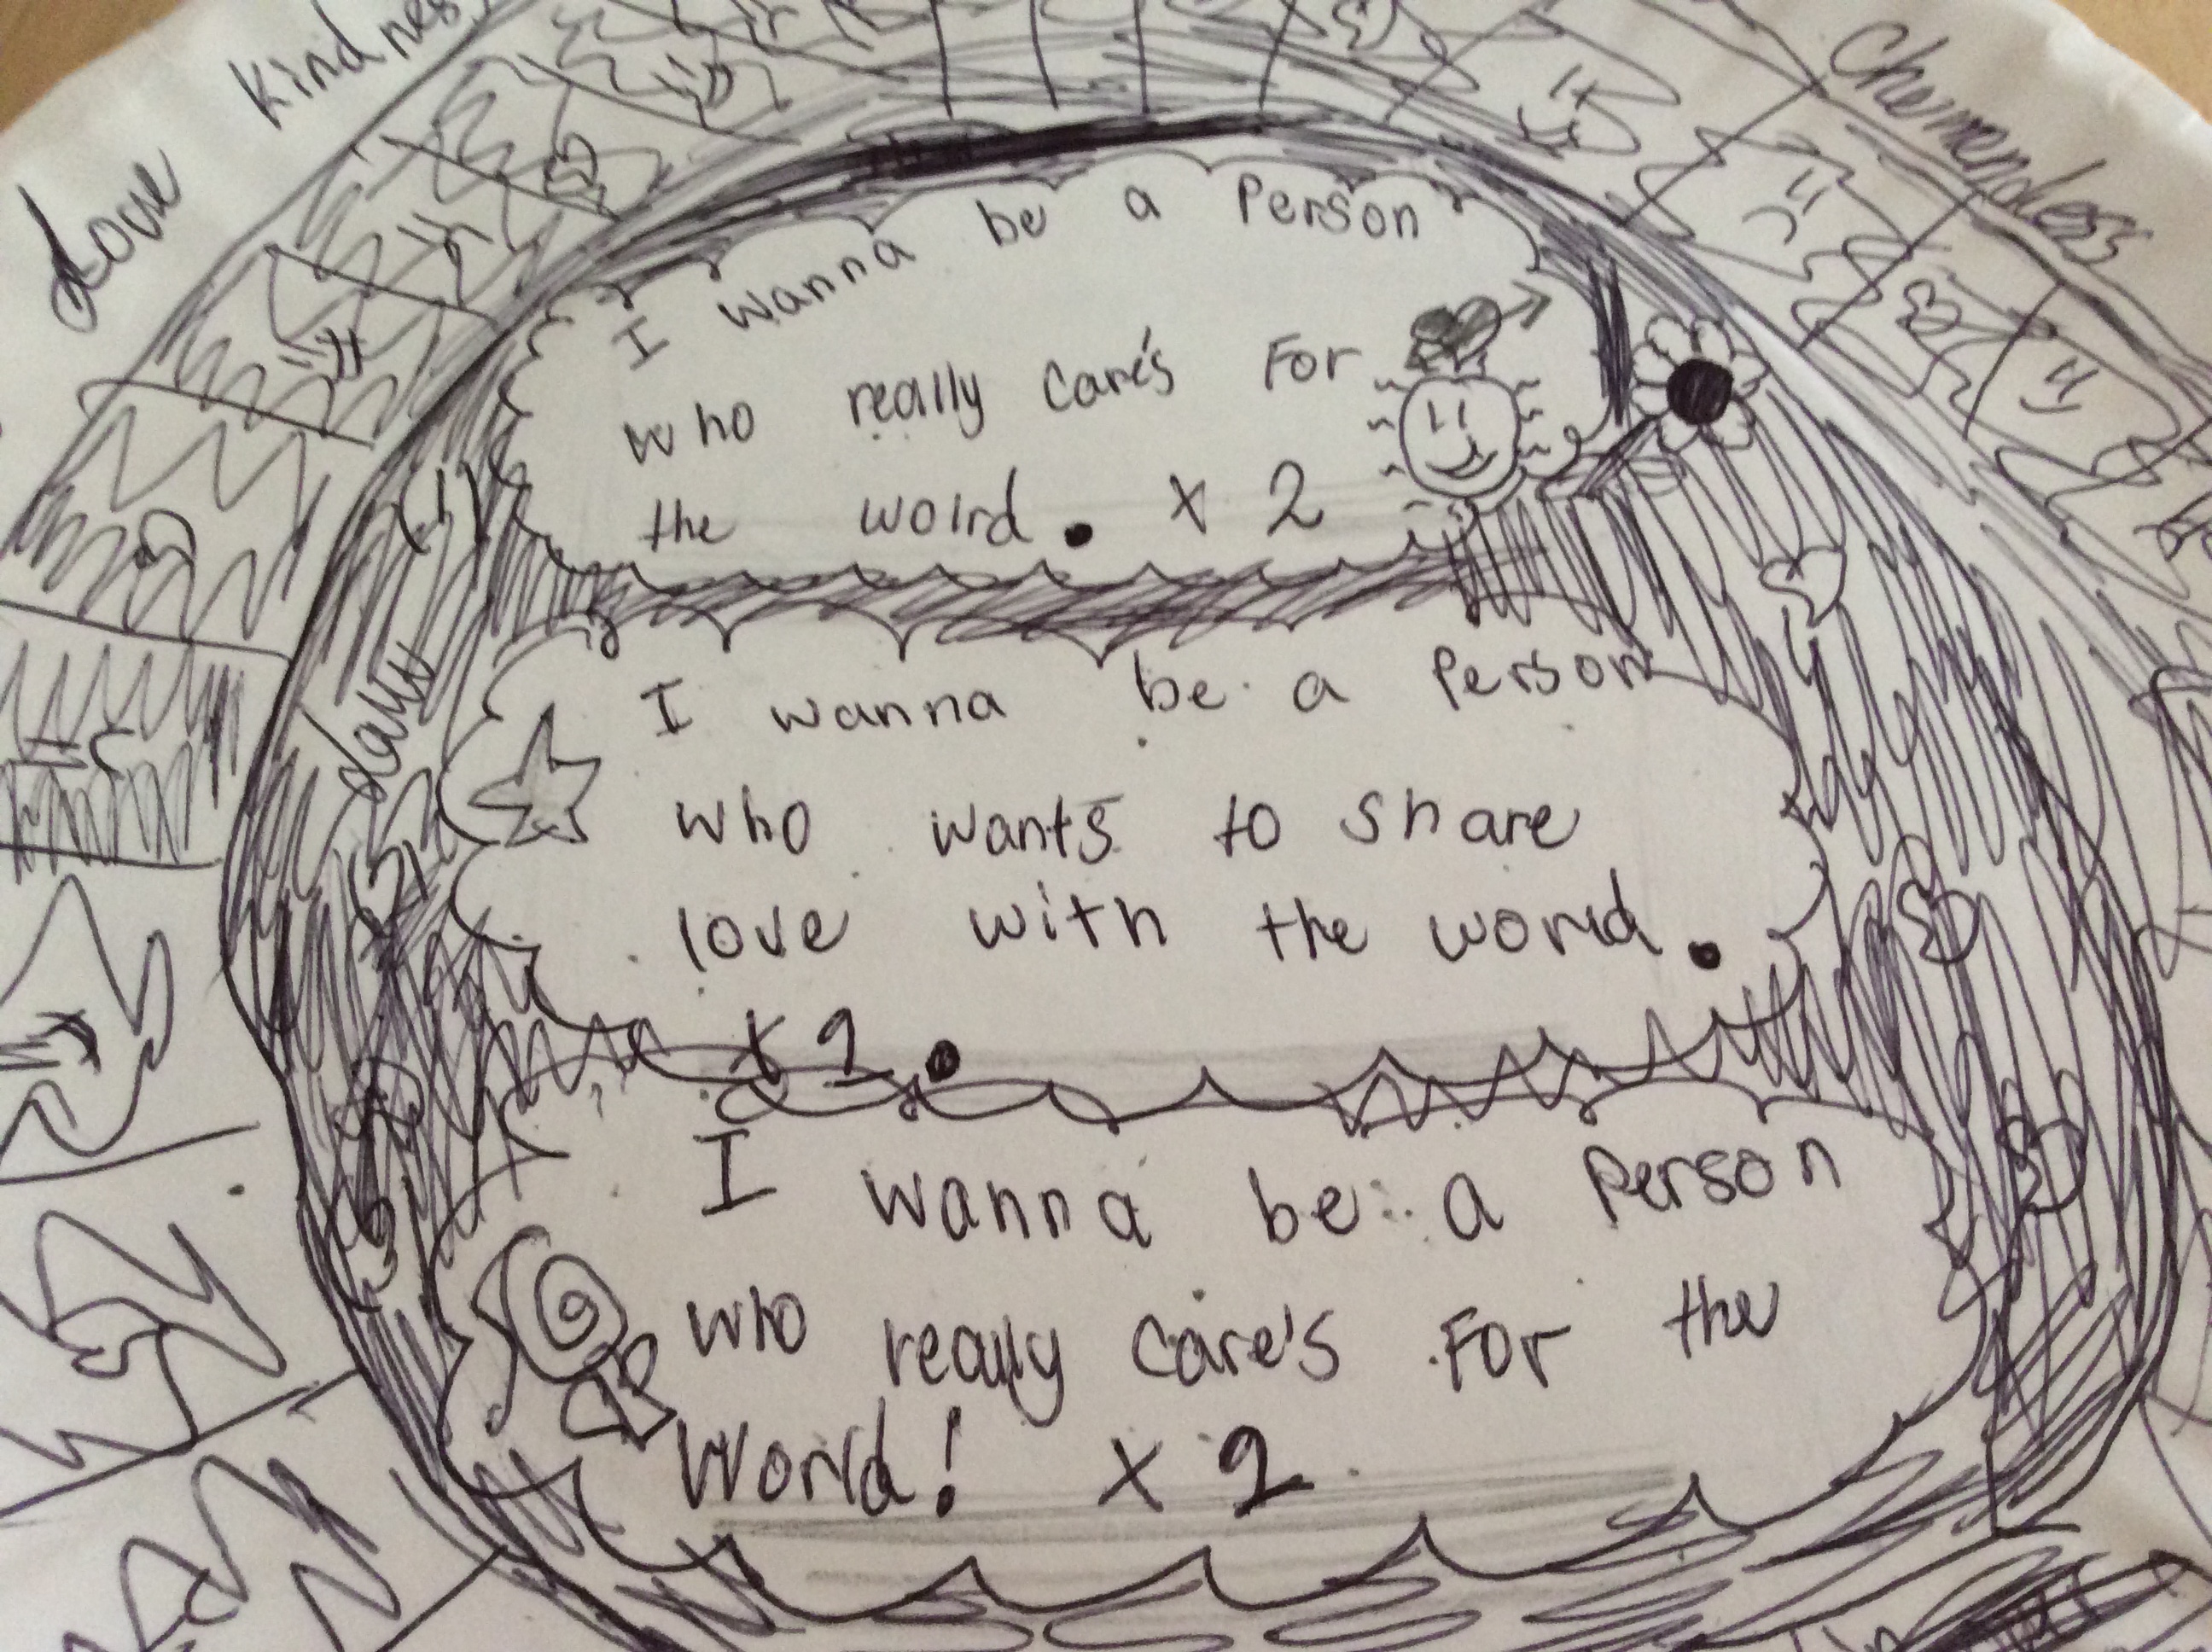 Kindness
Love
I wanna be a Person
who really care's For
the wolrd. x 2
(1)
I wanna be a Person
who wants to share
love with the world.
x 2.
I wanna be a Person
who really care's For the
World! x 2